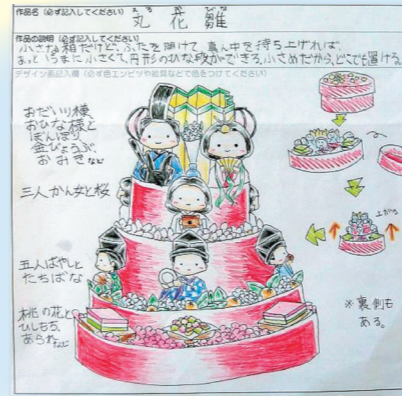 作品名（必ず記入してください）
まる ばな びな
丸 花 雛
作品の説明（必ず記入してください）
小さな箱だけど、ふたを開けて、真ん中を持ち上げれば、
あっというまに小さくて、円形のひな段ができる。小さめだから、どこでも置ける。
デザイン画記入欄（必ず色エンピツや絵具などで色をつけてください）
おだいり様
おひな様と
ぼんぼり
金びょうぶ、
おみきなど
三人かん女と桜
五人ばやしと
たちばな
桃の花と
ひしもち、
あられなど
上がる
※裏側も
ある。